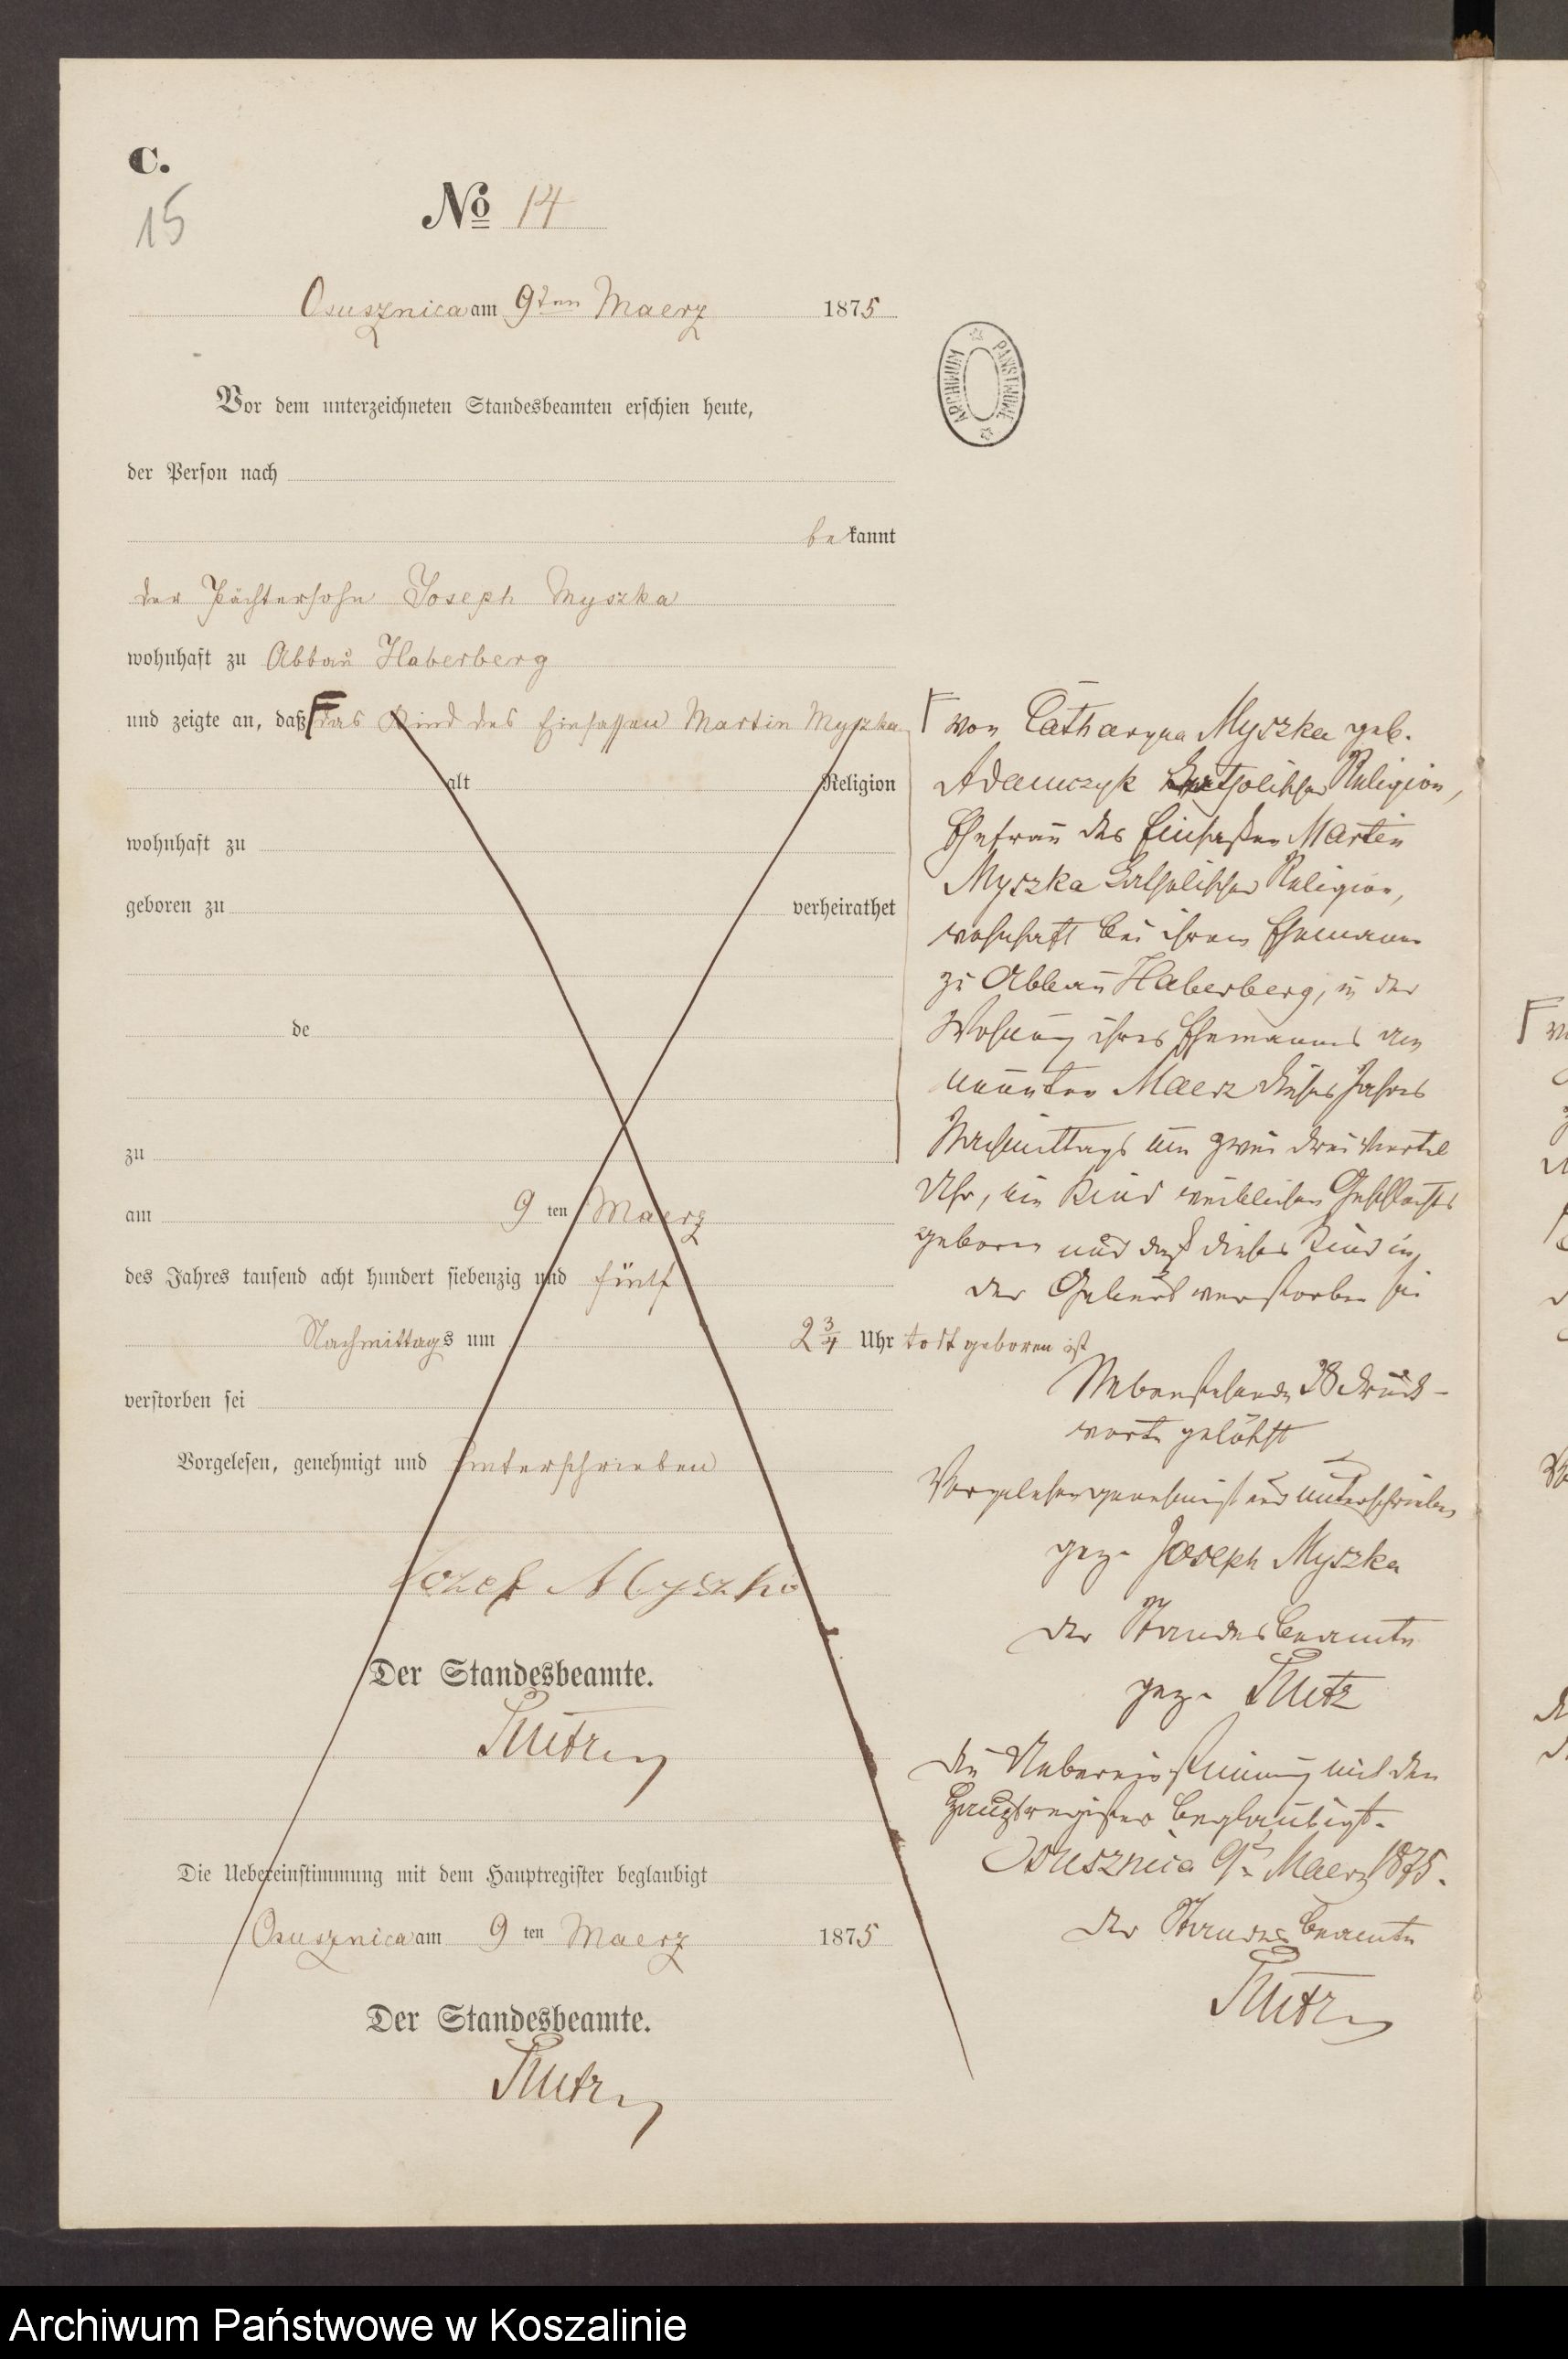 C.
15
No 14
Osusznica am 9ten Maerz 1875
Vor dem unterzeichneten Standesbeamten erschien heute,
der Person nach
bekannt
der Pächtersohn Joseph Myszka
wohnhaft zu Abbau Haberberg
und zeigte an, daß das Kind des Einsassen Martin Myszka
alt Religion
wohnhaft zu
geboren zu verheirathet
de
zu
am 9 ten Maerz
des Jahres tausend acht hundert siebenzig und fünf
Nachmittags um 2 3/4 Uhr todt geboren ist
verstorben sei
Vorgelesen, genehmigt und unterschrieben
Jozef Myszka
Der Standesbeamte.
Die Uebereinstimmung mit dem Hauptregister beglaubigt
Osusznica am 9 ten Maerz 1875
Der Standesbeamte.
ARCHIWUM PAŃSTWOWE
von Catharyna Myszka geb.
Adamczyk katholischer Religion,
Ehefrau des Einsaßen Martin
Myszka katholischer Religion,
wohnhaft bei ihrem Ehemann
zu Abbau Haberberg, in der
Wohnung ihres Ehemannes am
neunten Maerz dieses Jahres
Nachmittags um zwei drei viertel
Uhr, ein Kind weiblichen Geschlechts
geboren und daß dieses Kind in
der Geburt verstorben sei
Nebenstehende 38 Druck-
worte gelöscht
Vorgelesen genehmigt und unterschrieben
gez. Joseph Myszka
der Standesbeamte
gez.
die Uebereinstimmung mit dem
Hauptregister beglaubigt.
Osusznica 9t Maerz 1875.
der Standesbeamte
Archiwum Państwowe w Koszalinie